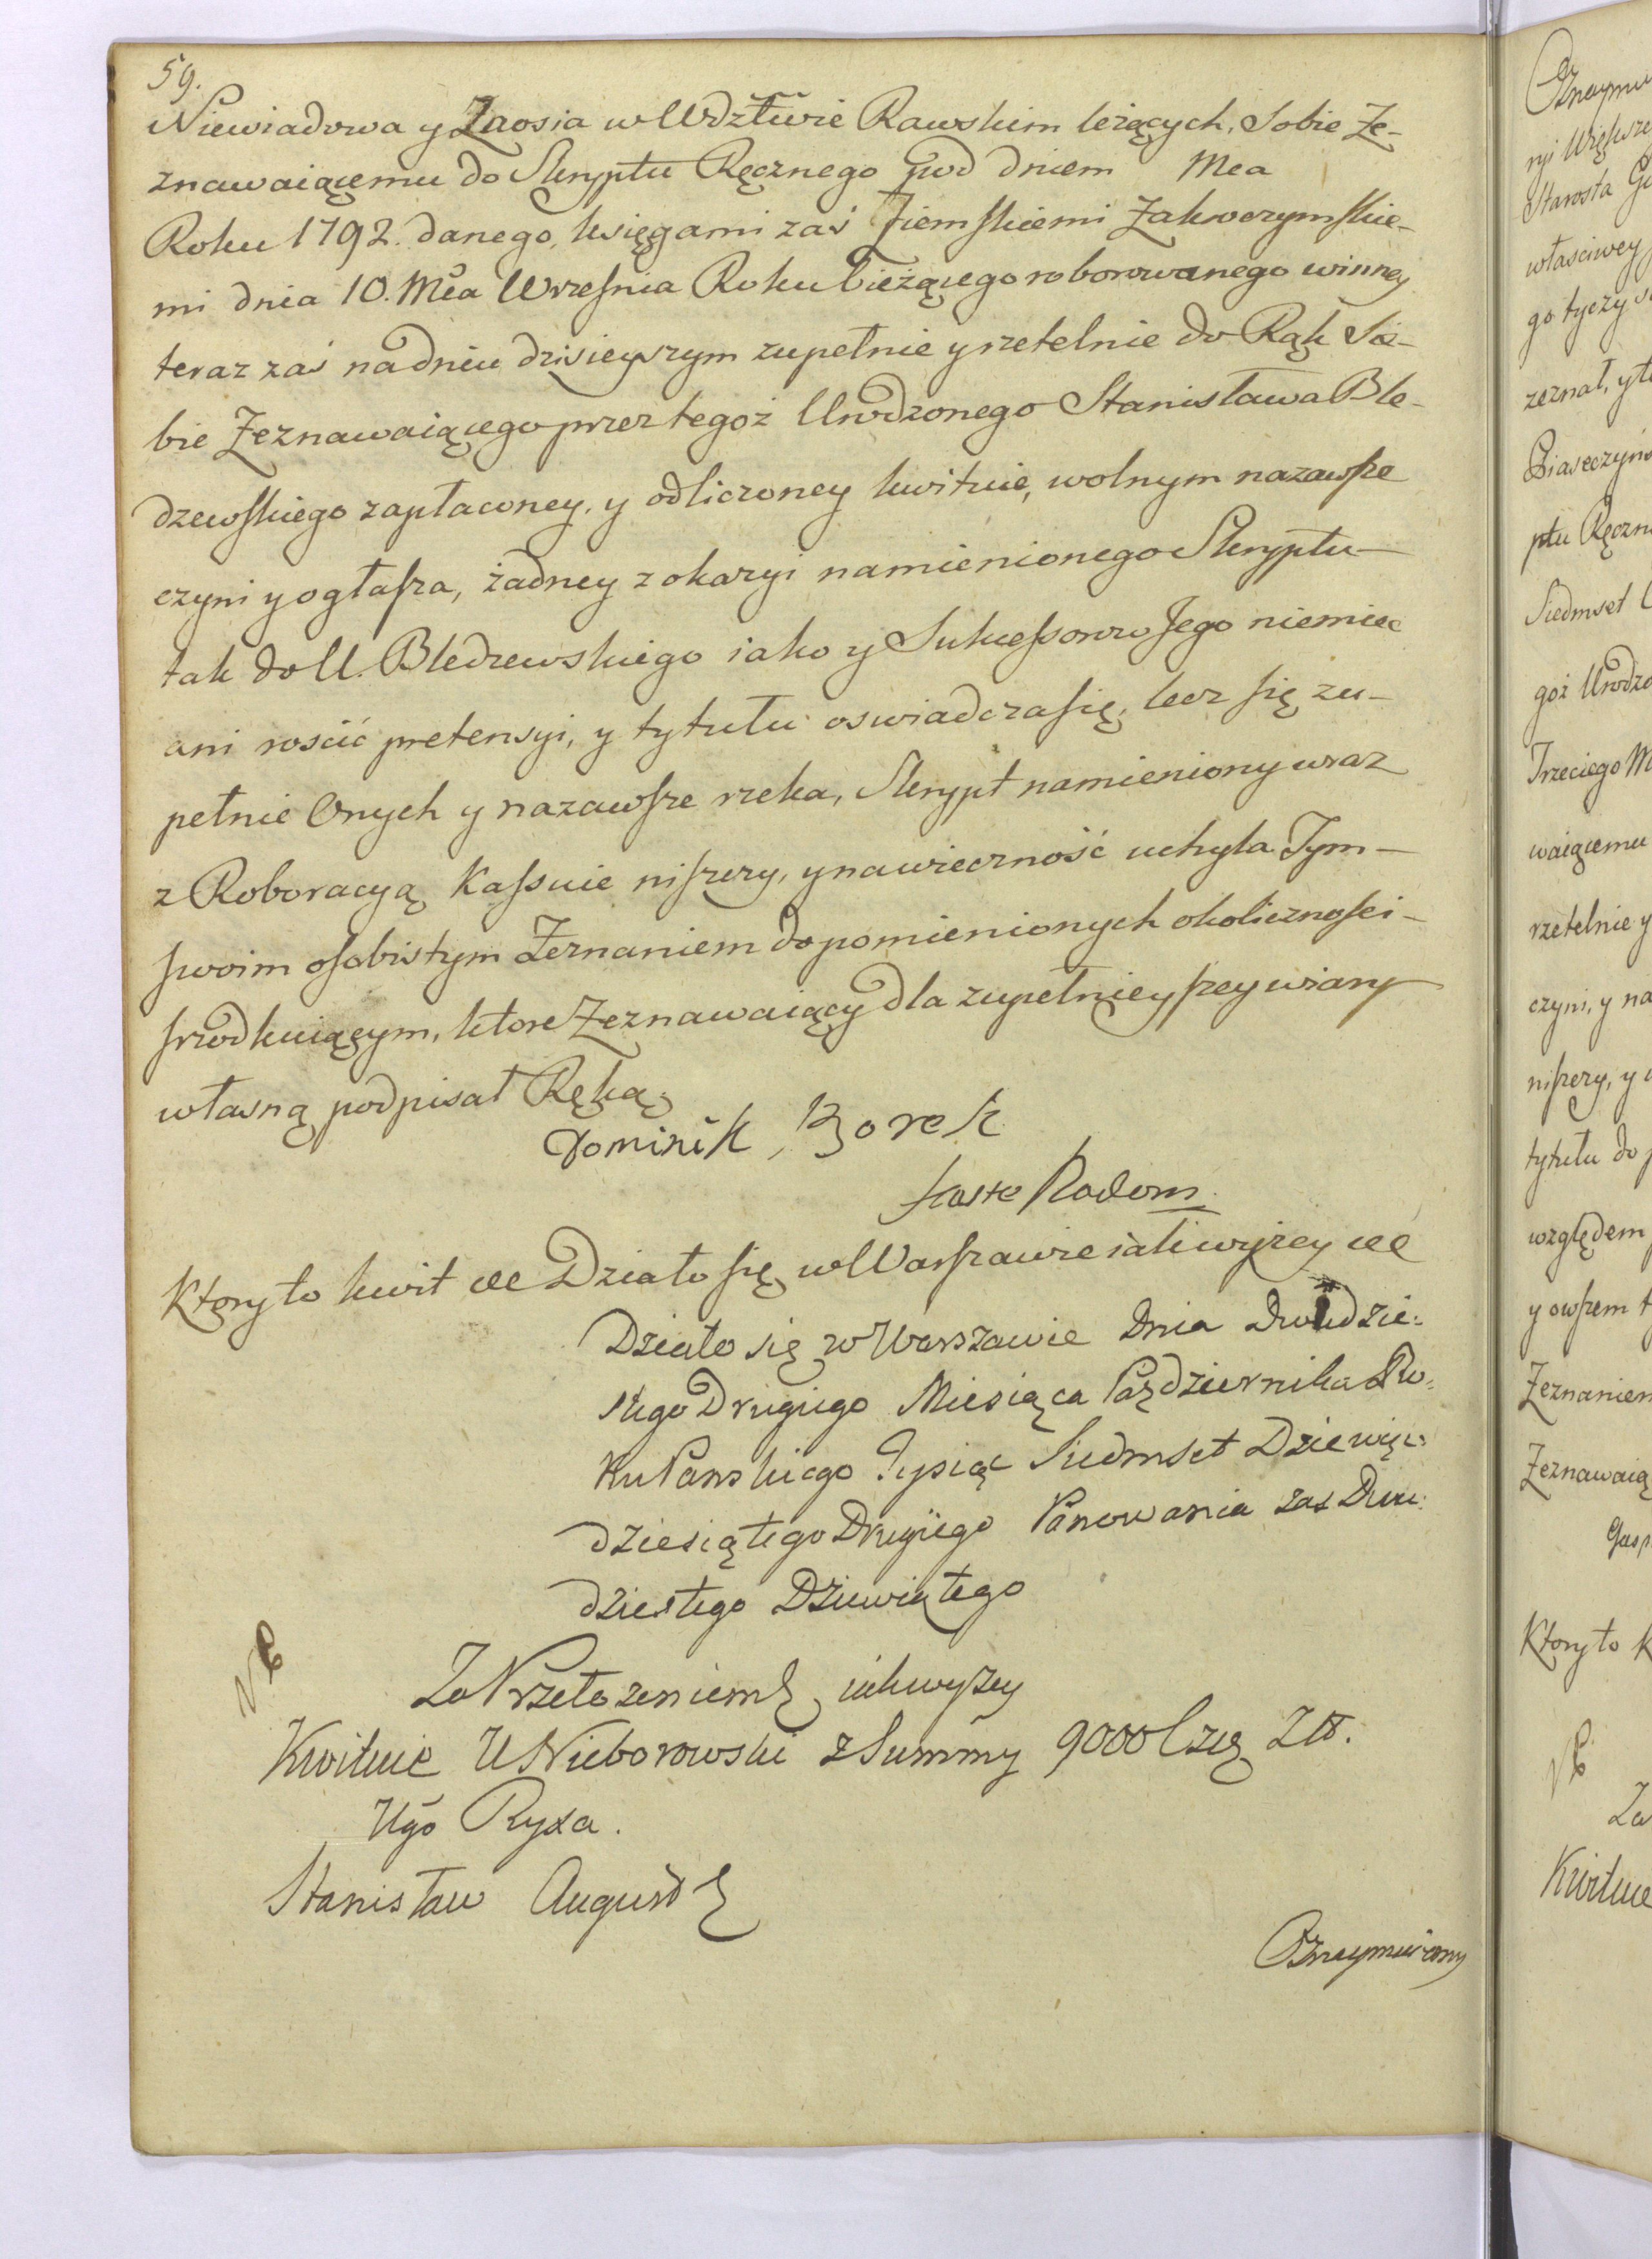 59.
Niewiadowa y Zaosia w Wdztwie Rawskim leżących, Sobie Ze-
znawaiącemu do Skryptu Ręcznego pod dniem Mca
Roku 1792. danego, księgami zaś Ziemskiemi Zakroczymskie-
mi dnia 10. Mca Wrzesnia Roku bieżącego roborowanego winney
teraz zaś na dniu dzisieyszym zupełnie y rzetelnie do Rąk Sie-
bie Zeznawaiącego przez tegoż Urodzonego Stanisława Ble-
dzewskiego zapłaconey, y odliczoney kwituie, wolnym nazawsze
czyni y ogłasza, żadney z okazyi namienionego Skryptu
tak do U. Bledzewskiego iako y Sukcessorow Jego niemieć
ani roscić pretensyi, y tytułu oswiadcza się, lecz się zu-
pełnie Onych y nazawsze rzeka, Skrypt namieniony wraz
z Roboracyą Kassuie niszczy, y na wieczność uchyla Tym-
swoim osobistym Zeznaniem do pomienionych okoliczności-
srzodkuiącym, ktore Zeznawaiący dla zupełnieyszey wiary
własną podpisał Ręką
Dominik Borek
Radom
Ktory to kwit &c Działo się w Warszawie iak wyżey &c
Działo się w Warszawie Dnia Dwudzie=
stego Drugiego Miesiąca Pazdziernika Ro=
ku Panskiego Tysiąc Siedmset Dziewięć
dziesiątego Drugiego Panowania zas Dwu=
dziestego Dziewiątego
Za Przełozeniem iak wyszey
Kwituie U Nieborowski z Summy 9000 Czę Zł.
Ugo Ryxa.
Stanisław August
Oznaymuiemy
Oznaymu
ryi Większe
Starosta
własciwey
go tyczy
zeznał, y
Piaseczyns
ptu Ręczn
Siedmset
goż Urodzo
Trzeciego M
waiącemu
rzetelnie y
czyni, y na
niszczy, y
tytułu do
względem
y owszem
Zeznaniem
Zeznawaią
Ktory to K
Za
Kwituie